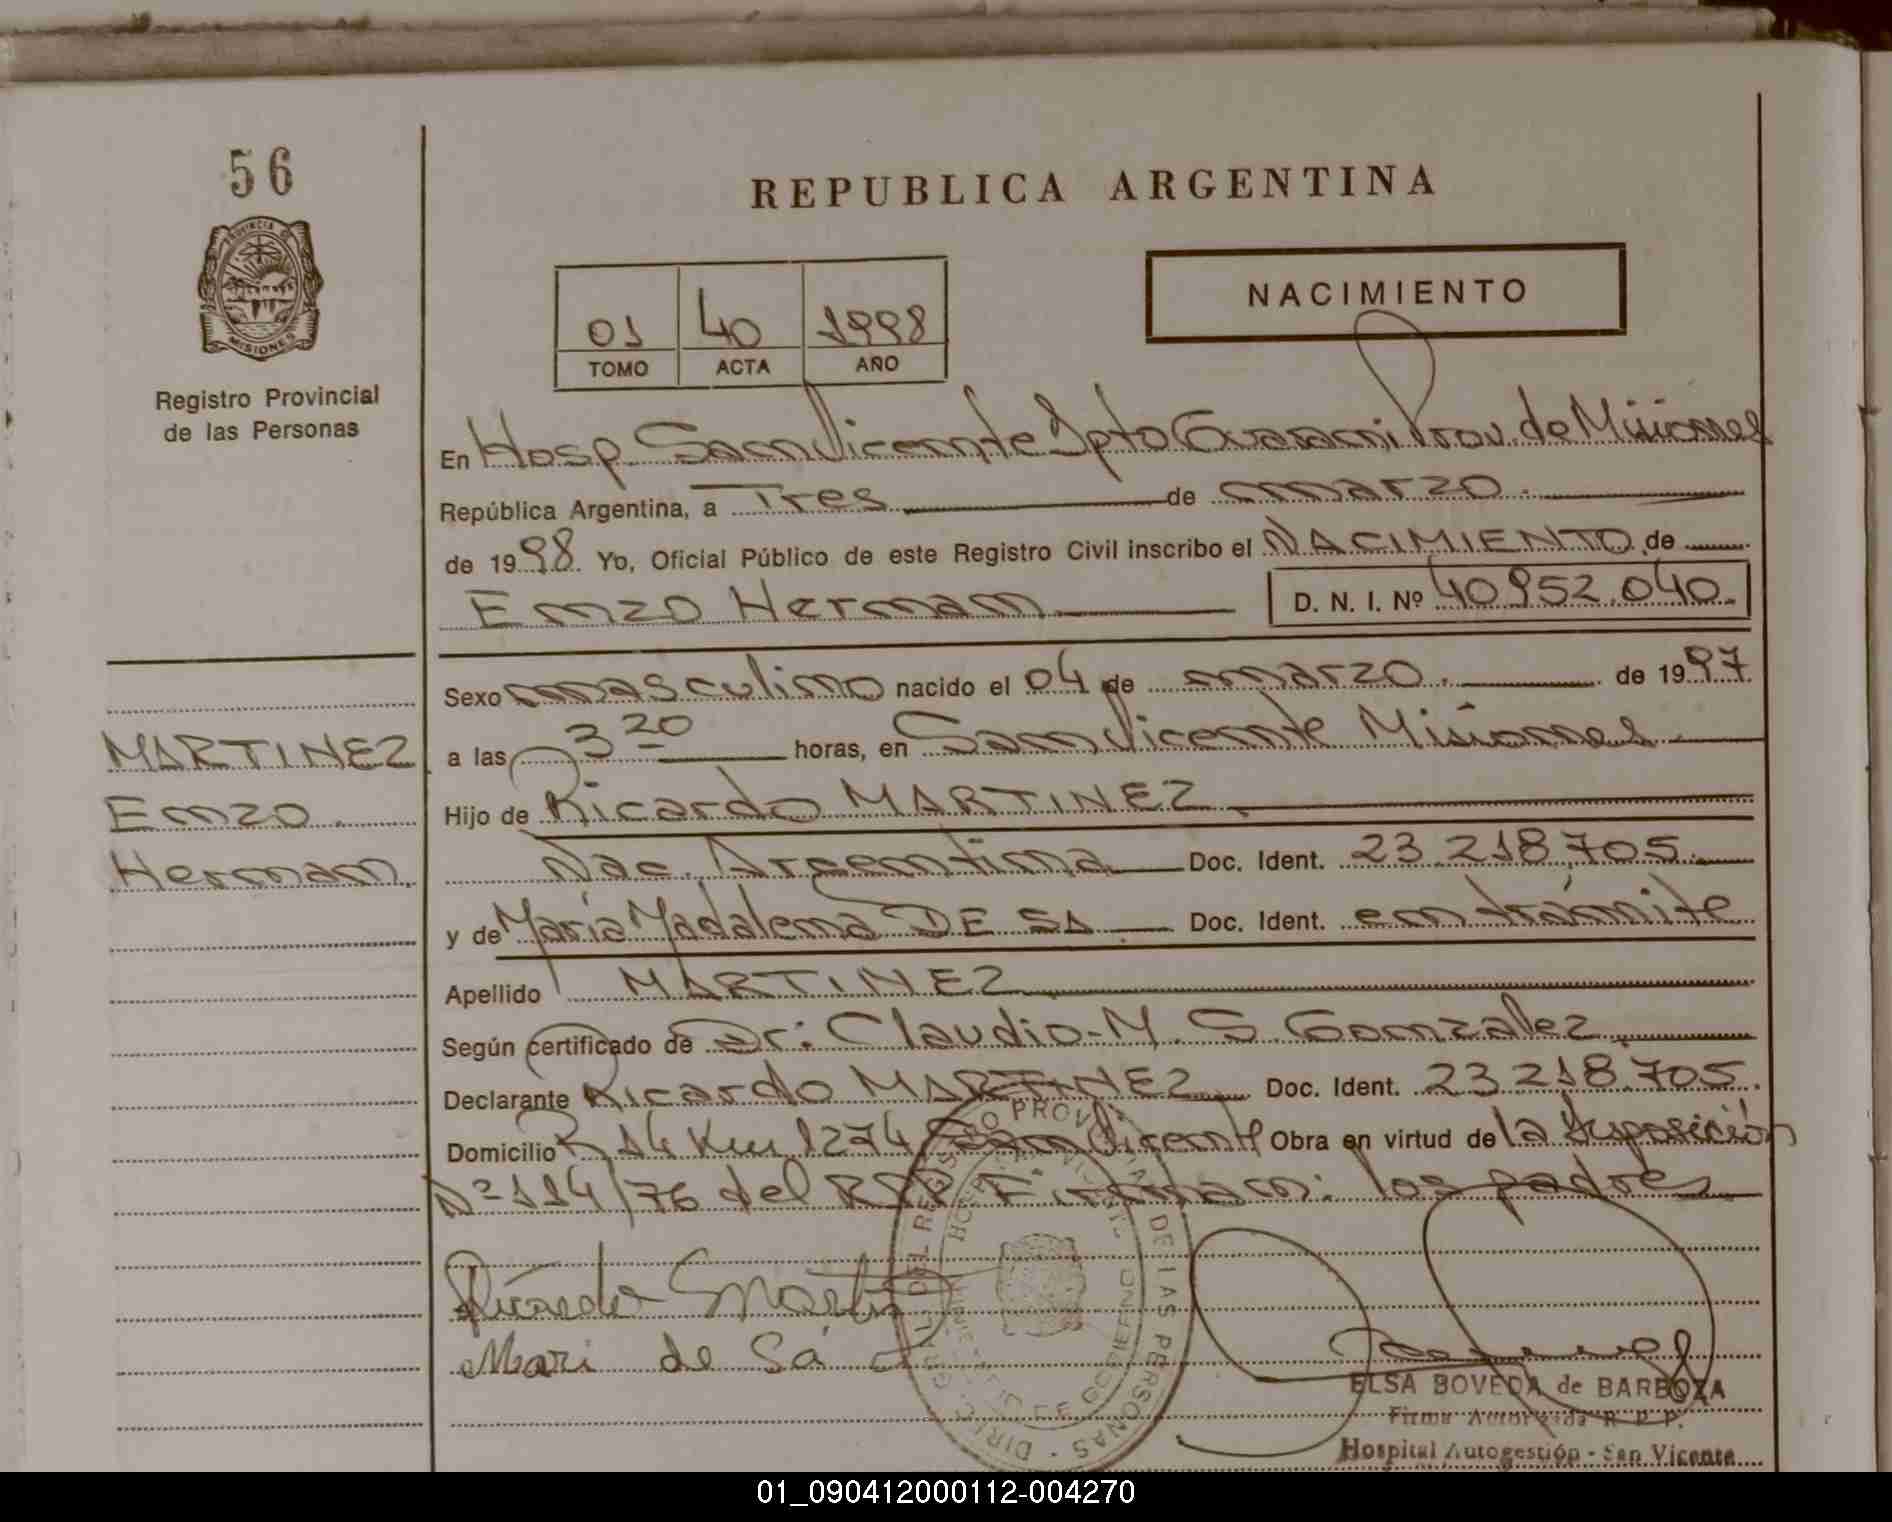 56
PROVINCIA DE
MISIONES
Registro Provincial
de las Personas
REPUBLICA ARGENTINA
01 40 1998
TOMO ACTA AÑO
NACIMIENTO
En Hosp San Vicente Dpto Guarani Prov. de Misiones
República Argentina, a Tres de marzo.
de 1998. Yo, Oficial Público de este Registro Civil inscribo el NACIMIENTO de
Enzo Hernan D. N. I. Nº 40952.040.
Sexo masculino nacido el 04 de marzo. de 1997.
a las 3 20 horas, en San Vicente Misiones
Hijo de Ricardo MARTINEZ.
Nac. Argentina Doc. Ident. 23.218.705.
y de María Madalena DE SA Doc. Ident. en trámite
Apellido MARTINEZ
Según certificado de Dr: Claudio-M. S. Gonzalez
Declarante Ricardo MARTINEZ Doc. Ident. 23218.705.
Domicilio R 14 Km 1274 San Vicente Obra en virtud de la disposición
Nº 114/76 del RPP Firman: los padres
MARTINEZ
Enzo.
Hernan.
Ricardo Martin
Mari de Sá
DIRECC. GRAL. DEL REGISTRO PROVINCIAL DE LAS PERSONAS
ELSA BOVEDA de BARBOZA
Firma Autorizada R. P. P.
Hospital Autogestión - San Vicente
01_090412000112-004270